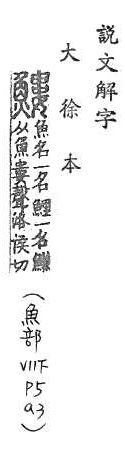 說文解字
大徐本
魚名一名鯉一名鰜
从魚婁聲洛侯切
(魚部
VII下
P5
a3)